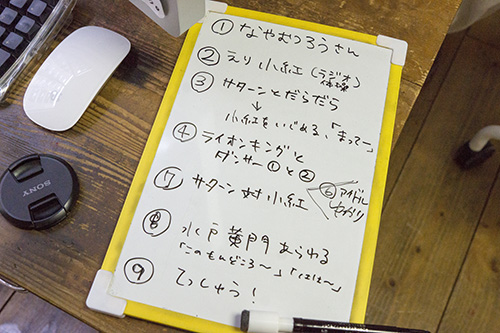 ① なやむつろうさん
② えり小紅(ラジオ体操)
③ サターンとだらだら
↓
小紅をいじめる、「まってー」
④ ライオンキングと
ダンサー①と②
⑦ サターン対小紅
⑥ アイドル
⑧ 水戸黄門あらわる
「このもんどころ〜」「ははー」
⑨ てっしゅう!
SONY